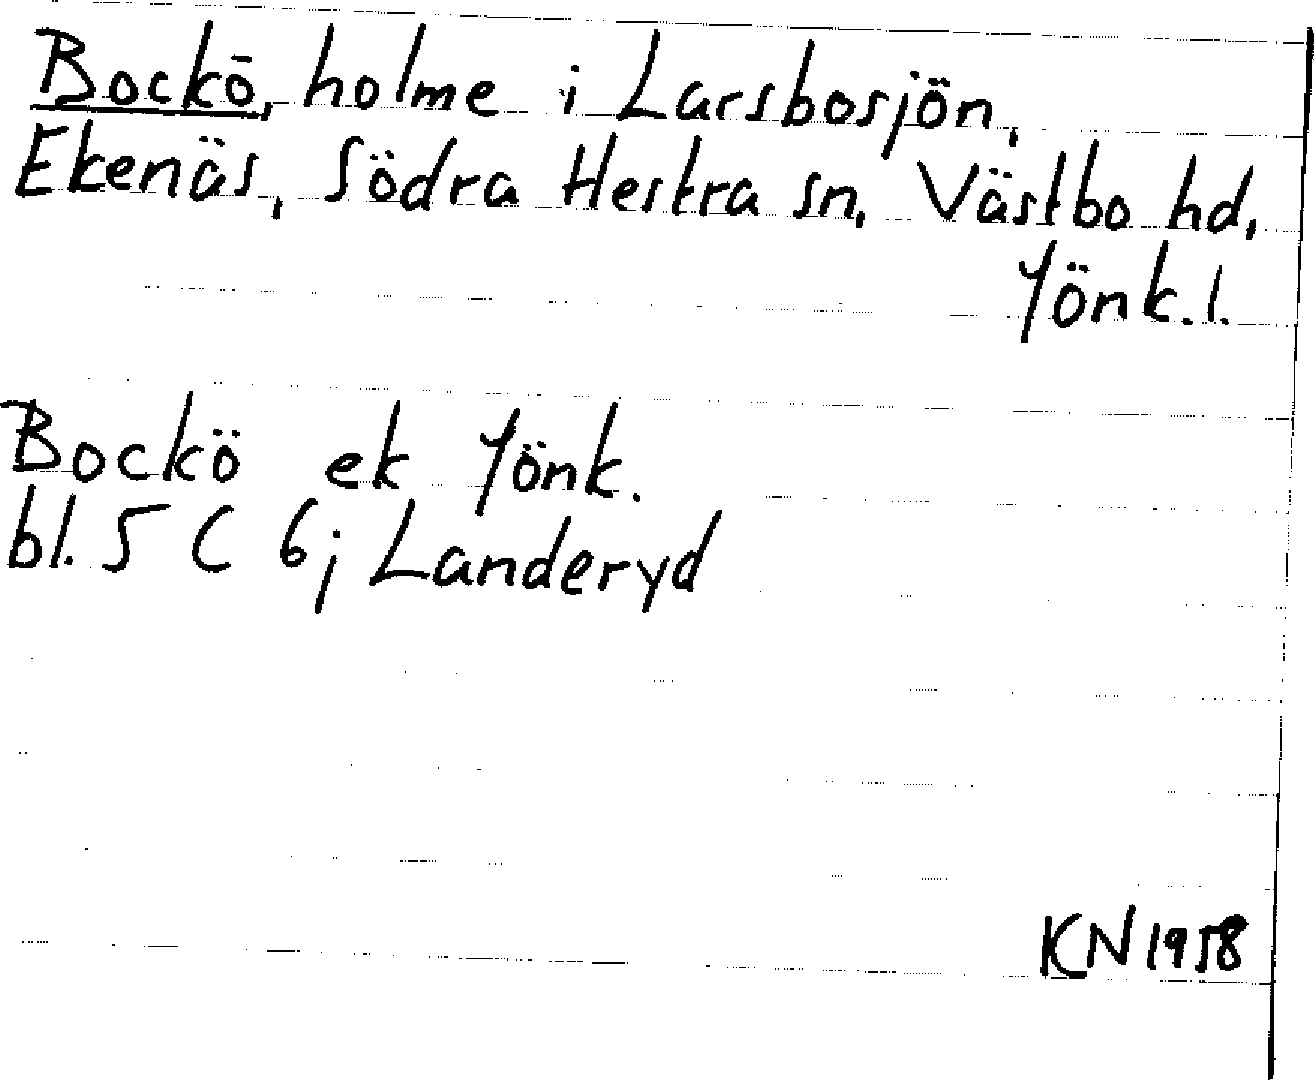 Bockö, holme i Larsbosjön,
Ekenäs, Södra Hestra sn, Västbo hd,
Jönk. l.
Bockö ek Jönk.
bl. 5 C 6j Landeryd
KN 1958